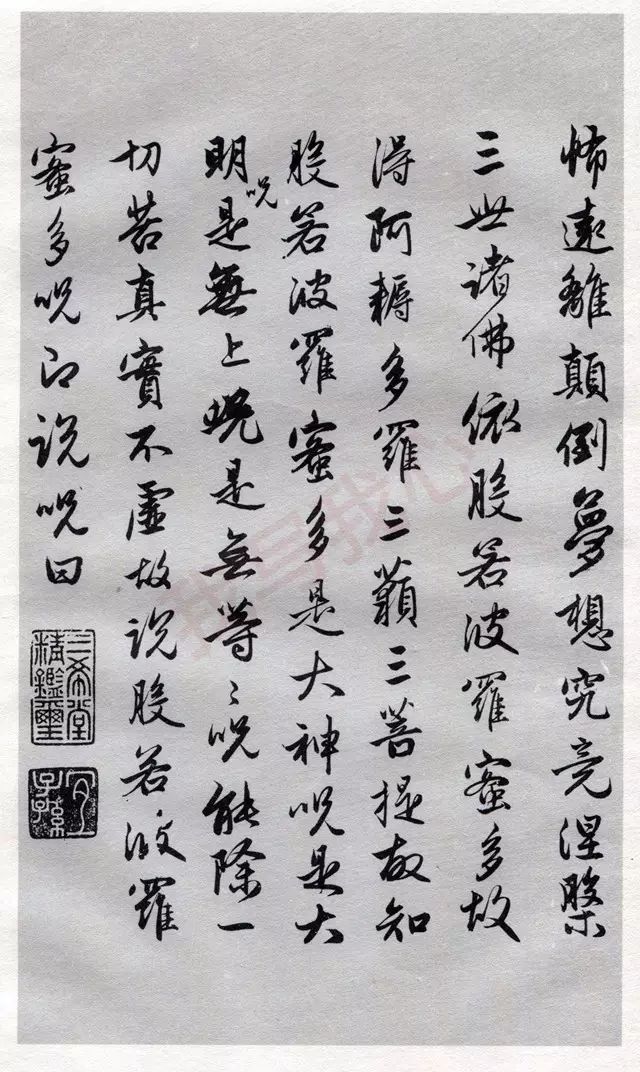 怖遠離顛倒夢想究竟涅槃
三世諸佛依般若波羅蜜多故
得阿耨多羅三藐三菩提故知
般若波羅蜜多是大神呪是大
明呪是無上呪是無等〻呪能除一
切苦真實不虛故說般若波羅
蜜多呪即說呪曰
三希堂
精鑑璽
宜
子孫
我写我心